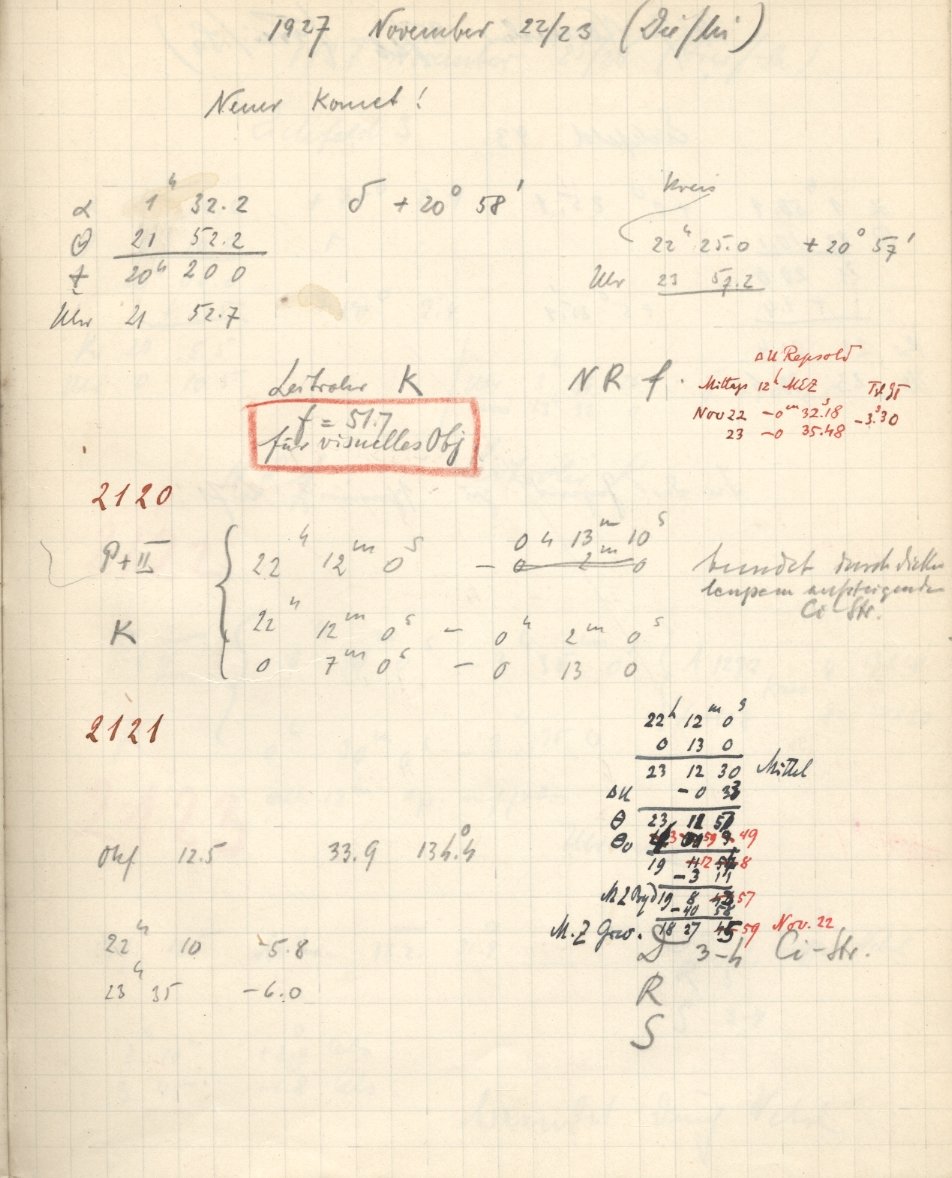 1927 November 22/23 (Die/Mi)
Neuer Komet!
α 1h 32.2 δ +20° 58'
Θ 21 52.2
t 20h 20 0
Uhr 21 52.7
Kreis
22h 25.0 +20° 57'
Uhr 23 57.2
Leitrohr K N R f.
f = 51.7
für visuelles Obj
ΔU Repsold
Mittags 12h MEZ Tägl
Nov 22 -0m 32.18 -3.s30
23 -0 35.48
2120
P + II 22h 12m 0s - 0h 13m 10s
0 2m 0
beendet durch
langsam aufsteigende
Ci-Str.
K 22h 12m 0s - 0h 2m 0s
0 7m 0s - 0 13 0
2121
22h 12m 0s
0 13 0
23 12 30 Mittel
ΔU -0 33
Θ 23 11 57
Θ₀ 3 59 49
19 12 8
-3 11
M.Z. 19 8 57
-40 58
M.Z Grw. 18 27 59 Nov. 22
12.5 33.9 134.4
22h 10 -5.8
23h 35 -6.0
L 3-4 Ci-Str.
R
S